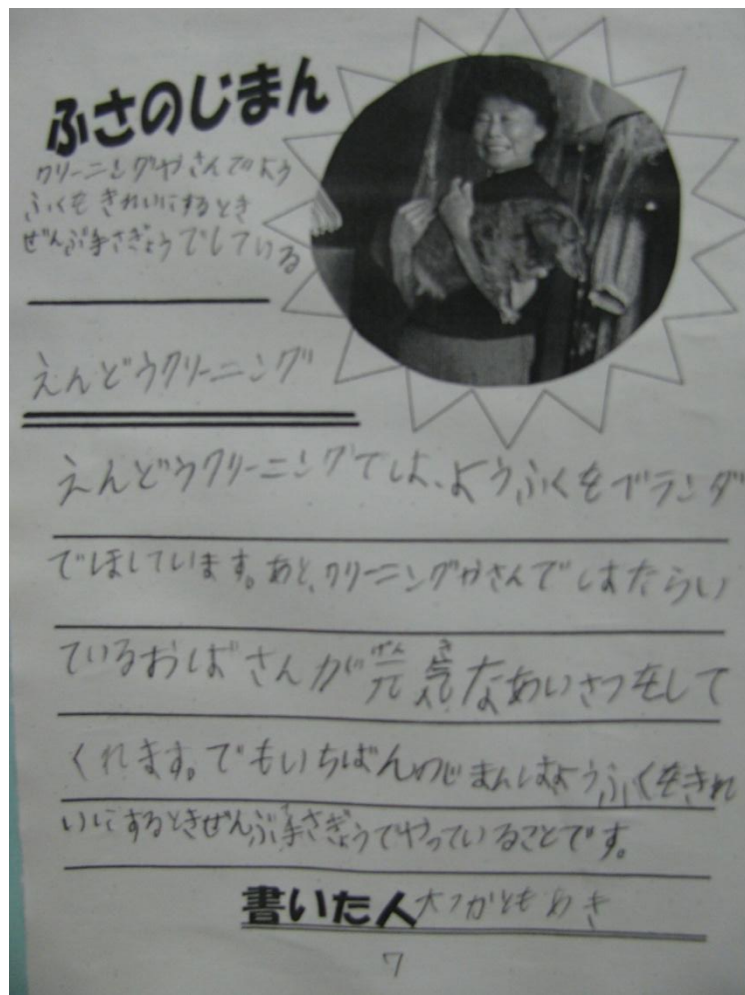 ふさのじまん
クリーニングやさんでよう
ふくをきれいにするとき
ぜんぶ手さぎょうでしている
えんどうクリーニング
えんどうクリーニングでは、ようふくをベランダ
でほしています。あと、クリーニングやさんではたらい
ているおばさんが元気なあいさつをして
くれます。でもいちばんのじまんはようふくをきれ
いにするときぜんぶ手さぎょうでやっていることです。
書いた人
7